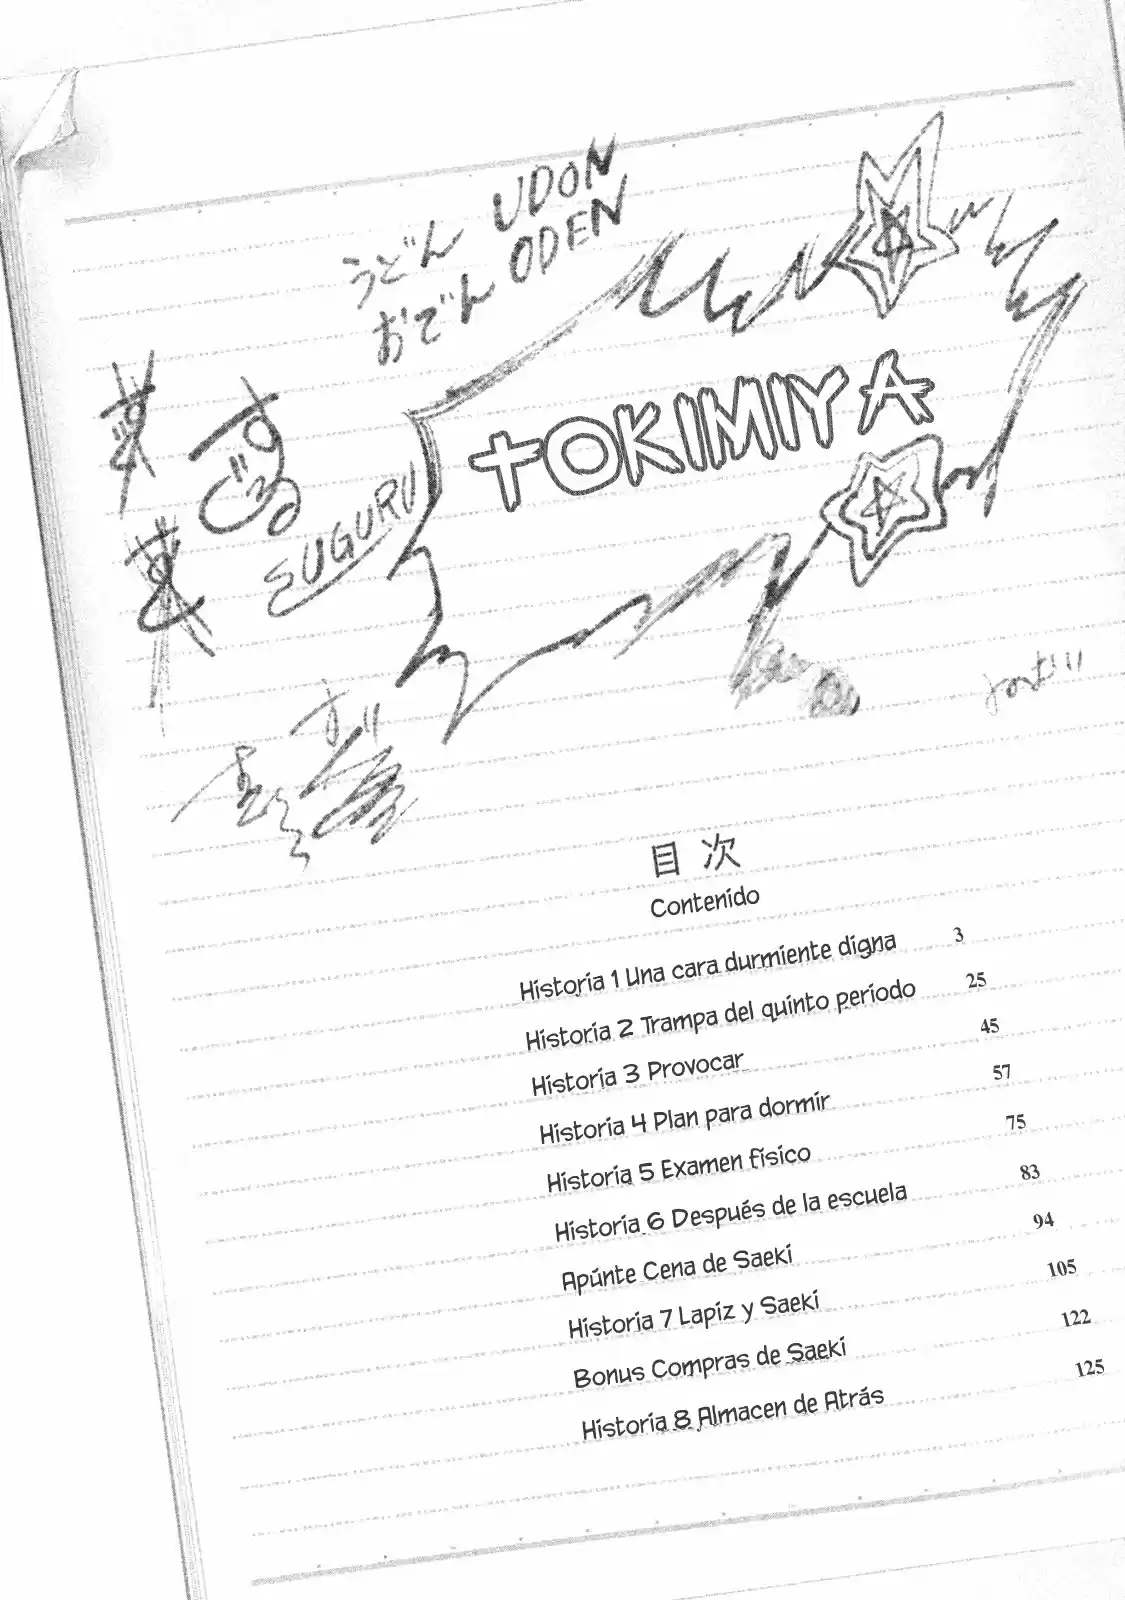 うどん UDON
おでん ODEN
TOKIMIYA
すぐる
SUGURU
目次
Contenido
Historia 1 Una cara durmiente digna 3
Historia 2 Trampa del quinto periodo 25
Historia 3 Provocar 45
Historia 4 Plan para dormir 57
Historia 5 Examen físico 75
Historia 6 Después de la escuela 83
Apúnte Cena de Saeki 94
Historia 7 Lapiz y Saeki 105
Bonus Compras de Saeki 122
Historia 8 Almacen de Atrás 125